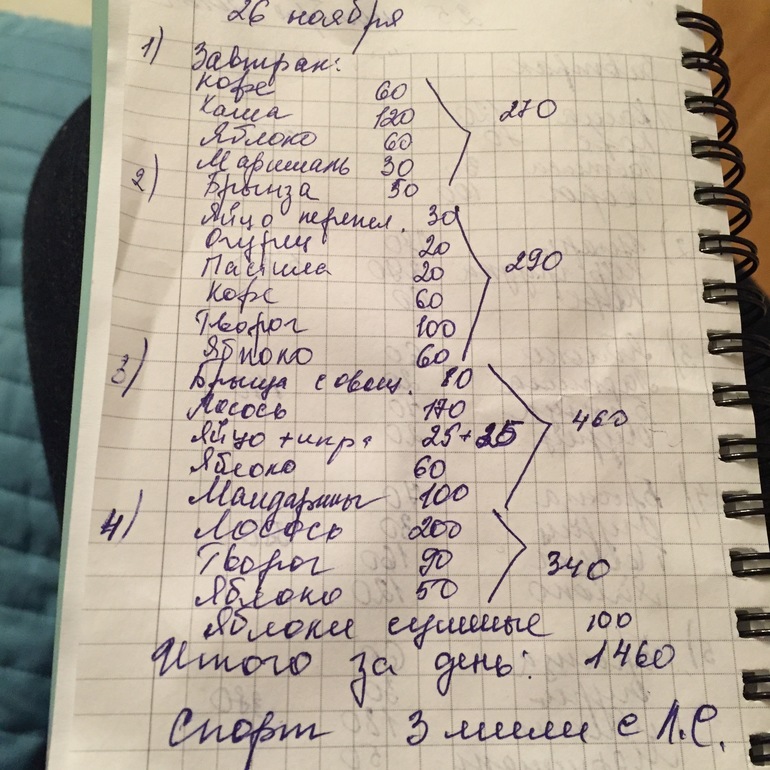 26 ноября
1) Завтрак:
Кофе 60
Каша 120 270
Яблоко 60
Маршмаль 30
2) Брынза 50
Яйцо перепел. 30
Огурец 20
Пастила 20 290
Кофе 60
Творог 100
Яблоко 60
3) Брынза с овощ. 80
Лосось 170 460
Яйцо + икра 25+25
Яблоко 60
Мандарины 100
4) Лосось 200
Творог 90 340
Яблоко 50
Яблоки сушеные 100
Итого за день: 1460
Спорт 3 мили с Л.С.